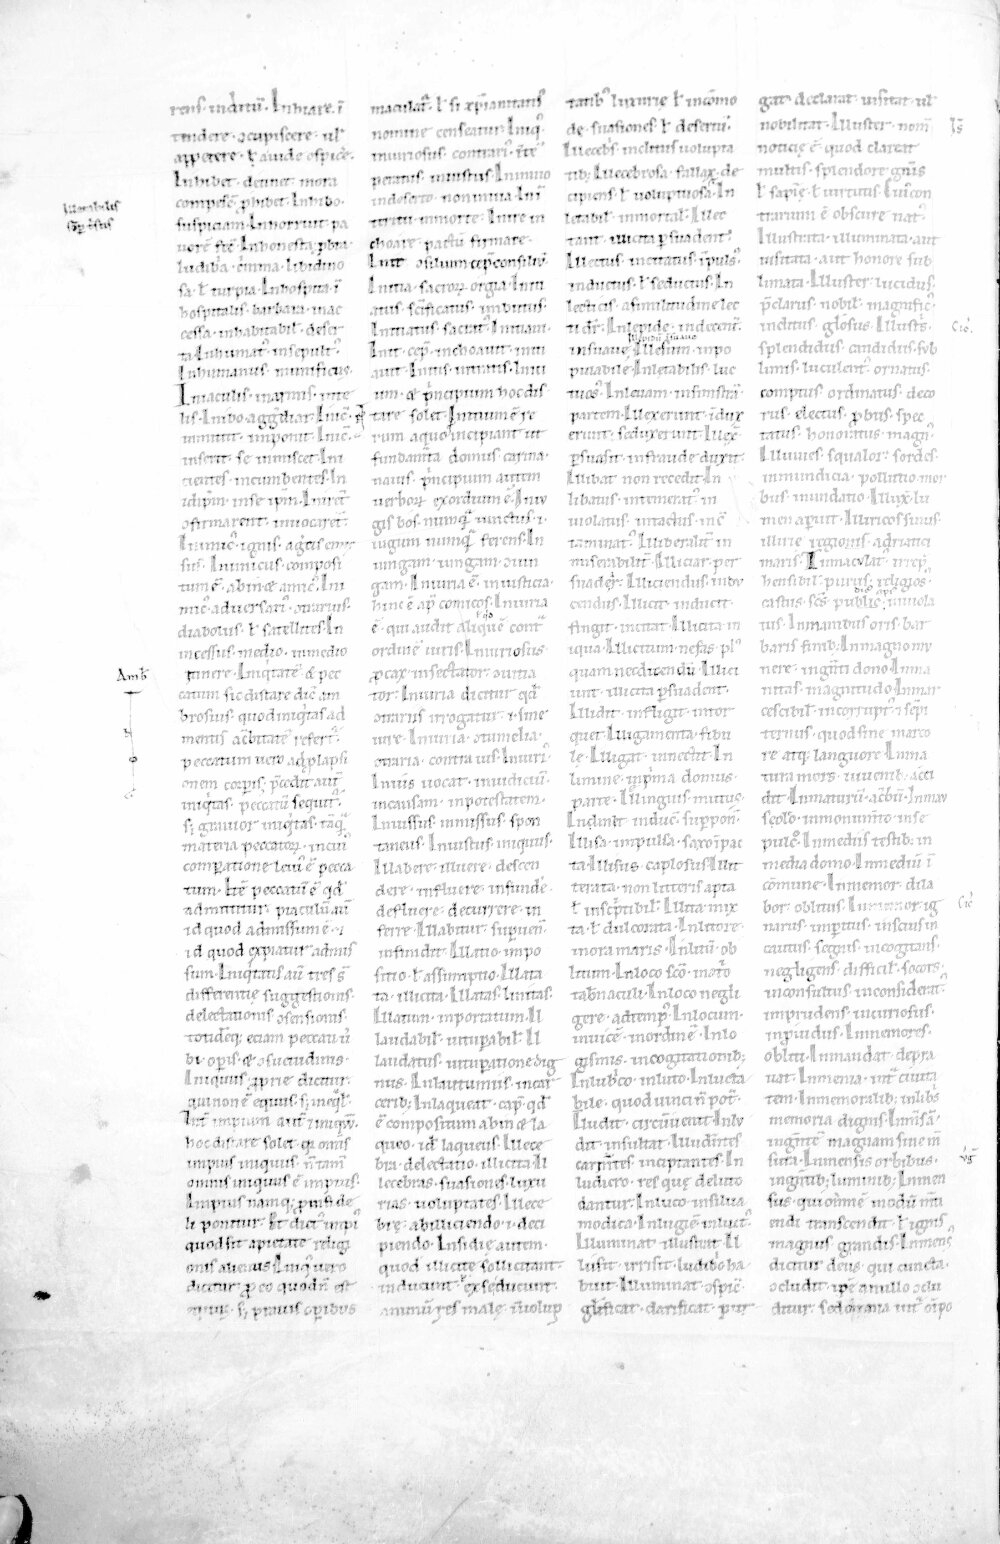 rens induciū. Inhiare. ī
tendere. ɔcupiscere. ul
appetere. ł auide ɔspicē.
Inhibet. detinet. mora
compescē. ꝓhibet. Inhibo.
suspiciam. Inhorruit. pa
uorē. Inhonesta. ꝓbra.
sa. ł turpia. Inhospita. ī
hospitalis. barbara. inac
cessa. inhabitabil. deser
ta. Inhumat᾿. insepult᾿.
Inhumanus. munificus.
Iniaculis. inarmis. inte
lis. Inibo. aggrediar. Inic̄.
inmittit. imponit. Inic̄.
inserit. se inmiscet. Ini
tientes. incumbentes. In
idipm̄. inse ipm̄. Iniret᾿
ɔfirmarent. inuocaret᾿.
sus. Inimicus. composi
tum ē. abin & amic᾿. Ini
mic᾿. aduersari᾿. ɔtrarius.
diabolus. ł satellites. In
incessus. medio. inmedio
itinere. Iniq̇tatē & pec
catum sic distare dic̄ am
brosius. quod iniq̇tas ad
mentis ac̄bitatē refert᾿.
peccatum uero adꝓlapsi
onem corꝑis. p̄cedit aut̄
iniq̇tas. peccatū sequit᾿.
s; grauior iniq̇tas. tāq̄
materia peccatoꝝ. incui᾿
comparatione leui᾿ ē pecca
tum. Itē peccatū ē qd̄
admittitur. piaculū aū
id quod admissum ē. i
id quod expiatur admis
sum. Iniq̇tatis aū tres s̄
differentię. suggestionis.
delectationis. ɔsensionis.
totidēq; eciam peccati ū
bi. opis. & ɔsuetudinis.
Iniquus. ꝓprie dicitur.
qui non ē equus. s; ineq̄l᾿.
Int̄ impium aut̄. & iniqū.
hoc distare solet. qd̄ omnis
impius iniquus. n̄ tam̄
omnis iniquus ē impius.
Impius namq; ꝓ infide
li ponitur. Et dict᾿ impi᾿
quod sit apietate religi
onis alienus. Iniq᾿ uero
dicitur ꝓ eo quod n̄ est
equus. s; prauis oꝑibus
maculat᾿. ł si xp̄ianitatis᾿
nomine censeatur. Iniq᾿.
iniuriosus. contrari᾿. ītē
peratus. iniustus. Ininiuo
teritū. inmorte. Inire. in
choare. pactū firmare.
Iniit. ɔsilium cep̄. consiliū.
Initia. sacroꝝ. orgia. Initi
atus. scificatus. imbutus.
Initiatus. sacrat᾿. Initiam.
Iniit. cep̄. inchoauit. initi
auit. Initis. initiatis. Initi
um. & p̄ncipium. hoc dis
tare solet. Initium ē re
rum aquo incipiant. ut
fundam̄ta. domus. carina.
nauis. p̄ncipium autem
uerboꝝ exordium ē. Iniu
gis. bos. numq̄ iunctus. i.
iugum numq̄ ferens. In
iungam. iungam. ɔiun
gam. Iniuria ē. iniusticia.
hinc ē ap̄ comicos. Iniuria
ē. qui audit aliquē cont̄
ordinē iuris. Iniuriosus.
ꝓcax. insectator. ɔuitia
tor. Iniuria dicitur qd̄
ɔtra ius irrogatur. i. sine
iure. Iniuria. ɔtumelia.
ɔtraria. contra ius. Iniuri᾿.
Iniuis uocat. iniudiciū.
incausam. inpotestatem.
Iniussus. inmissus. spon
taneus. Iniustus. iniquus.
Illabere. illuere. descen
dere. influere. infunde.
defluere. decurrere. in
ferre. Illabitur. supuen̄.
infundit. Illatio. impo
sitio. ł assumptio. Illata
ta. illicita. Illatas. linitas.
Illatum. inportatum. Il
laudabil. uitupabil. Il
laudatus. uitupatione dig
nus. Inlautumis. incar
cerib; Inlaqueat. cap̄. qd̄
ē compositum abin & la
queo. id laqueis. Illece
bra. delectatio. illicita. Il
lecebras. suasiones. luxu
rias. uoluptates. Illece
brę. abilliciendo. i. deci
piendo. Insidię autem.
quod illicite sollicitant
inducunt & seducunt
animū res malę. n̄ uolup
tatib᾿ luxurię. ł incōmo
de. suasiones. ł deserui.
Illecebs inclitus uolupta
tib; Illecebrosa. fallax. de
cipiens. ł uoluptuosa. In
letabil. inmortal. Illec
tant. illicita ꝑsuadent.
Illectus. incitatus. ipuls᾿.
inductus. ł seductus. In
lecticis. asimilitudine lec
ti dr̄. Inlepide. indecent.
insuaue. Illesum. inpo
putabile. Inletabilis. luc
tuos᾿. Inleuam. insinistrā
partem. Illexerunt. īdux
erunt. seduxerunt. Illex̄.
ꝑsuasit. infraude duxit.
Illibat. non recedit. In
libatus. intemerat᾿. in
uiolatus. intactus. inc̄
taminat᾿. Illiberalit̄. in
miserabilit̄. Illiciat. per
suadet᾿. Illiciendus. indu
cendus. Illicit. inducit.
fingit. incitat. Illicita. in
iqua. Illicitum. nefas. pl᾿
quam nec dicendū. Illici
unt. illicita ꝑsuadent.
Illidit. infligit. intor
quet. Illigamenta. fibu
lę. Illigat. innectit. In
limine. inp̄ma domus.
parte. Illinguis. mutus.
Inclinet. induc̄. suppon̄.
Illisa. impulsa. saxo ipac
ta. Illisus. caplosus. Illit
terata. non litteris apta
ł inscp̄tibil. Illita. mix
ta. ł dulcorata. Inlitore.
inora maris. Inlitū. ob
litum. Inloco. scō. inat᾿o
tab̄naculi. Inloco. negli
gere. adtemp᾿. Inlocum.
inuicē. inordinē. Inlo
gismis. incogitationib;
Inlubco. inluto. Inlucta
bile. quod uinci n̄ pot᾿.
Iludit. circūuenit. Inlu
dit. insultat. Illudn̄tes
carpn̄tes. increpantes. In
ludicro. res quę deluto
dantur. Inluco. insilua
modica. Inlugiē. inluct᾿.
Illuminat. illustrat. Il
lusit. irrisit. ludib᾿o ha
buit. Illuminat. ɔspic̄.
glificat. clarificat. pur
gat. declarat. uisitat. ul
nobilitat. Illuster. nom̄
noticię ē. quod clareat
multis. splendore. gn̄is
ł sapię. ł uirtutis. Cui con
trarum ē. obscure nat᾿.
Illustrata. illuminata. aut
uisitata. aut honore sub
limata. Illuster. lucidus.
p̄clarus. nobil. magnific᾿.
inclitus. głosus. Illustris.
splendidus. candidus. sub
limis. luculent᾿. ornatus.
comptus. ordinatus. deco
rus. electus. ꝓbus. spec
tatus. honoratus. magn᾿.
Illuuies. squalor. sordes.
inmundicia. pollutio. mor
bus. inundatio. Illux. lu
men aperuit. Illiricos sinus.
illirię regionis. adriatici
maris. Inmaculat᾿. irrep̄
hensibil. purus. religios᾿.
castus. scs̄. public᾿. inuiola
tus. Inmanibus oris. bar
baris finib. Inmagno mu
nere. ingn̄ti dono. Inma
nitas. magnitudo. Inmar
cescibil. incorrupt᾿. sepi
ternus. quod sine marco
re atq; languore. Inma
tura mors. iuuenib; acci
dit. Inmaturū. ac̄bū. Inmau
seolō. inmonumto. inse
pulc᾿o. Inmedius. testib; in
media domo. Inmediū. ī
cōmune. Inmemor. dila
bor. oblitus. Inmemor. ig
narus. impitus. inscius. in
cautus. segnis. incogitans.
negligens. difficil. socors.
inconsultus. inconsiderat᾿.
imprudens. incuriosus.
inprouidus. Inmemores.
obliti. Inmandat. depra
uat. Inmenia. int᾿ ciuita
tem. Inmemoralib; inlibis
memoria dignis. Inmsā.
ingnt̄ē magnam sine m̄
sura. Inmensis orbibus.
ingn̄tib; luminib; Inmen
sus. qui om̄nē modū m̄ti
endi transcendit. ł ignis
magnus. grandis. Inmens᾿
dicitur deus. qui cuncta
ɔcludit. ipē anullo ɔclu
ditur. sed om̄ia int᾿ oīpo
Amb᾿
Is̄
Cic᾿.
Cic᾿